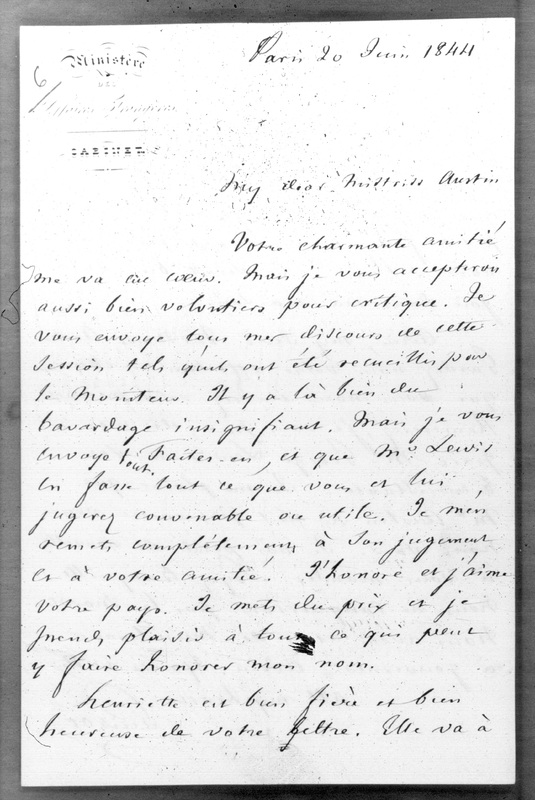 Ministère
DES
Affaires Etrangères
CABINET
6
Paris 20 Juin 1844
My dear Mistriss Austin
Votre charmante amitié
me va au coeur. Mais je vous accepterois
aussi bien volontiers pour critique. Je
vous envoye tous mes discours de cette
session tels qu'ils ont été recueillis par
le Moniteur. Il y a là bien du
bavardage insignifiant. Mais je vous
envoye tout. Faites-en, et que Mr. Lewis
en fasse tout ce que vous et lui
jugerez convenable ou utile. Je m'en
remets complètement à son jugement
et à votre amitié. J'honore et j'aime
votre pays. Je mets du prix et je
prends plaisir à tout ce qui peut
y faire honorer mon nom.
Henriette est bien fière et bien
heureuse de votre lettre. Elle va à